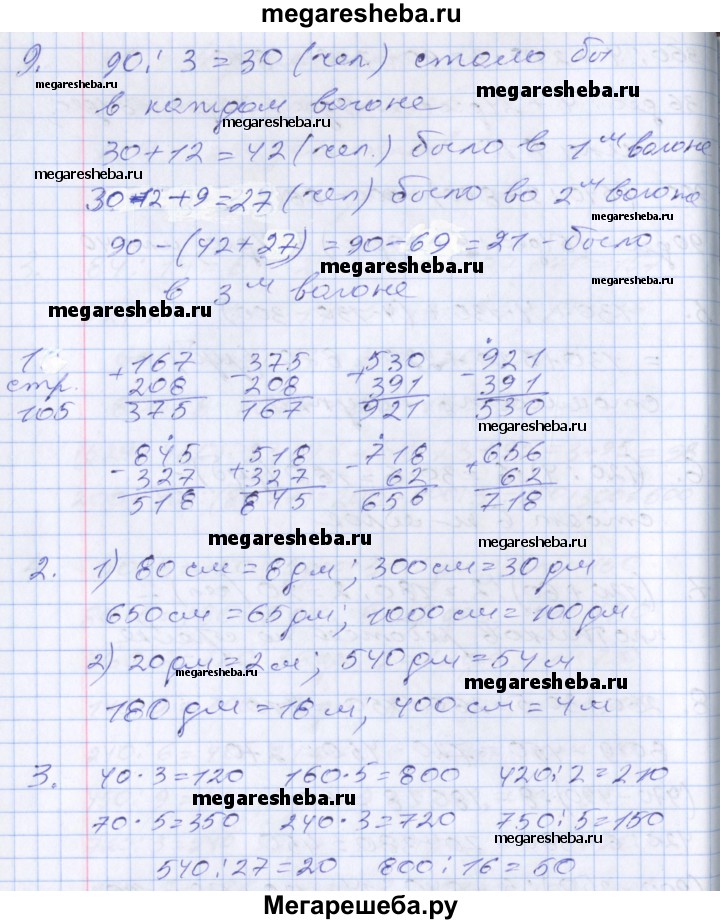 megaresheba.ru
9. 90 : 3 = 30 (чел.) стало бы
megaresheba.ru
megaresheba.ru
в каждом вагоне
megaresheba.ru
30+12 = 42 (чел.) было в 1м вагоне
megaresheba.ru
30-12+9=27 (чел) было во 2м вагоне
megaresheba.ru
90 - (42+27) = 90-69 = 21 - было
megaresheba.ru
megaresheba.ru
в 3м вагоне
megaresheba.ru
1. +167 -375 +530 -921
megaresheba.ru
стр. 208 208 391 391
105 375 167 921 530
megaresheba.ru
-845 +518 -718 +656
327 327 62 62
518 845 656 718
megaresheba.ru
megaresheba.ru
2. 1) 80 см = 8 дм; 300 см = 30 дм
650 см = 65 дм; 1000 см = 100 дм
2) 20 дм = 2 м; 540 дм = 54 м
megaresheba.ru
megaresheba.ru
180 дм = 18 м; 400 см = 4 м
3. 40·3=120 160·5=800 420:2=210
megaresheba.ru
70·5=350 240·3=720 750:5=150
megaresheba.ru
540:27=20 800:16=50
Мегарешеба.ру